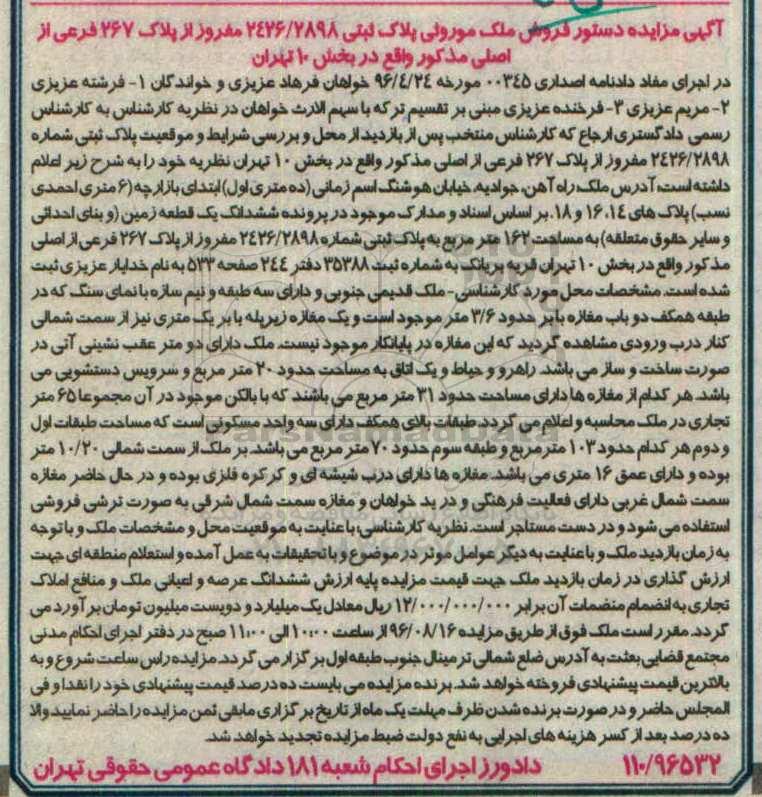 آگهی مزایده دستور فروش ملک موروثی پلاک ثبتی ۲۴۲۶/۲۸۹۸ مفروز از پلاک ۲۶۷ فرعی از
اصلی مذکور واقع در بخش ۱۰ تهران
در اجرای مفاد دادنامه اصداری ۰۰۳۴۵ مورخه ۹۶/۴/۲۴ خواهان فرهاد عزیزی و خواندگان ۱- فرشته عزیزی
۲- مریم عزیزی ۳- فرخنده عزیزی مبنی بر تقسیم ترکه با سهم الارث خواهان در نظریه کارشناس به کارشناس
رسمی دادگستری ارجاع که کارشناس منتخب پس از بازدید از محل و بررسی شرایط و موقعیت پلاک ثبتی شماره
۲۴۲۶/۲۸۹۸ مفروز از پلاک ۲۶۷ فرعی از اصلی مذکور واقع در بخش ۱۰ تهران نظریه خود را به شرح زیر اعلام
داشته است، آدرس ملک، راه آهن، جوادیه، خیابان هوشنگ اسم زمانی (ده متری اول) ابتدای بازارچه (۶ متری احمدی
نسب) پلاک های ۱۶،۱۴ و ۱۸. بر اساس اسناد و مدارک موجود در پرونده ششدانگ یک قطعه زمین (و بنای احداثی
و سایر حقوق متعلقه) به مساحت ۱۶۲ متر مربع به پلاک ثبتی شماره ۲۴۲۶/۲۸۹۸ مفروز از پلاک ۲۶۷ فرعی از اصلی
مذکور واقع در بخش ۱۰ تهران قریه بریانک به شماره ثبت ۳۵۳۸۸ دفتر ۲۴۴ صفحه ۵۳۳ به نام خدایار عزیزی ثبت
شده است. مشخصات محل مورد کارشناسی- ملک قدیمی جنوبی و دارای سه طبقه و نیم سازه با نمای سنگ که در
طبقه همکف دو باب مغازه با بر حدود ۳/۶ متر موجود است و یک مغازه زیرپله با بر یک متری نیز از سمت شمالی
کنار درب ورودی مشاهده گردید که این مغازه در پایانکار موجود نیست. ملک دارای دو متر عقب نشینی آتی در
صورت ساخت و ساز می باشد. راهرو و حیاط و یک اتاق به مساحت حدود ۲۰ متر مربع و سرویس دستشویی می
باشد. هر کدام از مغازه ها دارای مساحت حدود ۳۱ متر مربع می باشند که با بالکن موجود در آن مجموعا ۶۵ متر
تجاری در ملک محاسبه و اعلام می گردد. طبقات بالای همکف دارای سه واحد مسکونی است که مساحت طبقات اول
و دوم هر کدام حدود ۱۰۳ متر مربع و طبقه سوم حدود ۷۰ متر مربع می باشد. بر ملک از سمت شمالی ۱۰/۲۰ متر
بوده و دارای عمق ۱۶ متری می باشد. مغازه ها دارای درب شیشه ای و کرکره فلزی بوده و در حال حاضر مغازه
سمت شمال غربی دارای فعالیت فرهنگی و در ید خواهان و مغازه سمت شمال شرقی به صورت ترشی فروشی
استفاده می شود و در دست مستاجر است. نظریه کارشناسی؛ با عنایت به موقعیت محل و مشخصات ملک و با توجه
به زمان بازدید ملک و با عنایت به دیگر عوامل موثر در موضوع و با تحقیقات به عمل آمده و استعلام منطقه ای جهت
ارزش گذاری در زمان بازدید ملک جهت قیمت مزایده پایه ارزش ششدانگ عرصه و اعیانی ملک و منافع املاک
تجاری به انضمام منضمات آن برابر ۱۲/۰۰۰/۰۰۰/۰۰۰ ریال معادل یک میلیارد و دویست میلیون تومان برآورد می
گردد. مقرر است ملک فوق از طریق مزایده ۹۶/۰۸/۱۶ از ساعت ۱۰:۰۰ الی ۱۱:۰۰ صبح در دفتر اجرای احکام مدنی
مجتمع قضایی بعثت به آدرس ضلع شمالی ترمینال جنوب طبقه اول برگزار می گردد. مزایده راس ساعت شروع و به
بالاترین قیمت پیشنهادی فروخته خواهد شد. برنده مزایده می بایست ده درصد قیمت پیشنهادی خود را نقدا و فی
المجلس حاضر و در صورت برنده شدن ظرف مهلت یک ماه از تاریخ برگزاری مابقی ثمن مزایده را حاضر نمایید والا
ده درصد بعد از کسر هزینه های اجرایی به نفع دولت ضبط مزایده تجدید خواهد شد.
۱۱۰/۹۶۵۳۲ دادورز اجرای احکام شعبه ۱۸۱ دادگاه عمومی حقوقی تهران
ParsNamadData